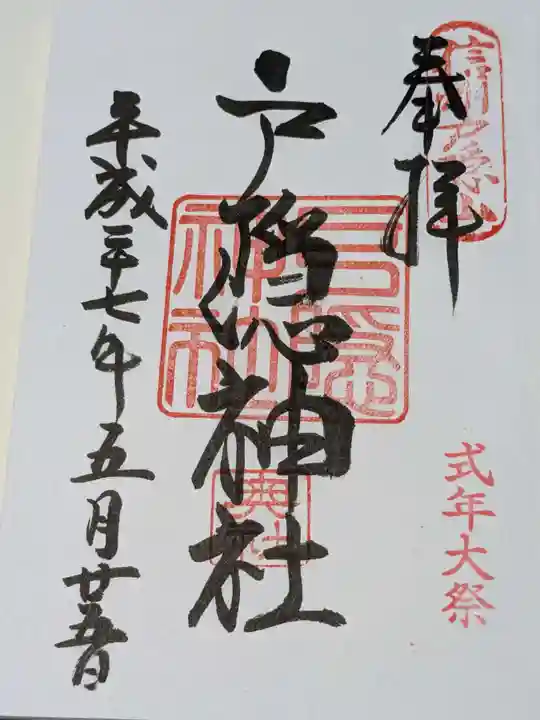 信州戸隠山
奉拝
式年大祭
戸隠神社
戸隠神社
奥社
平成二十七年五月廿五日